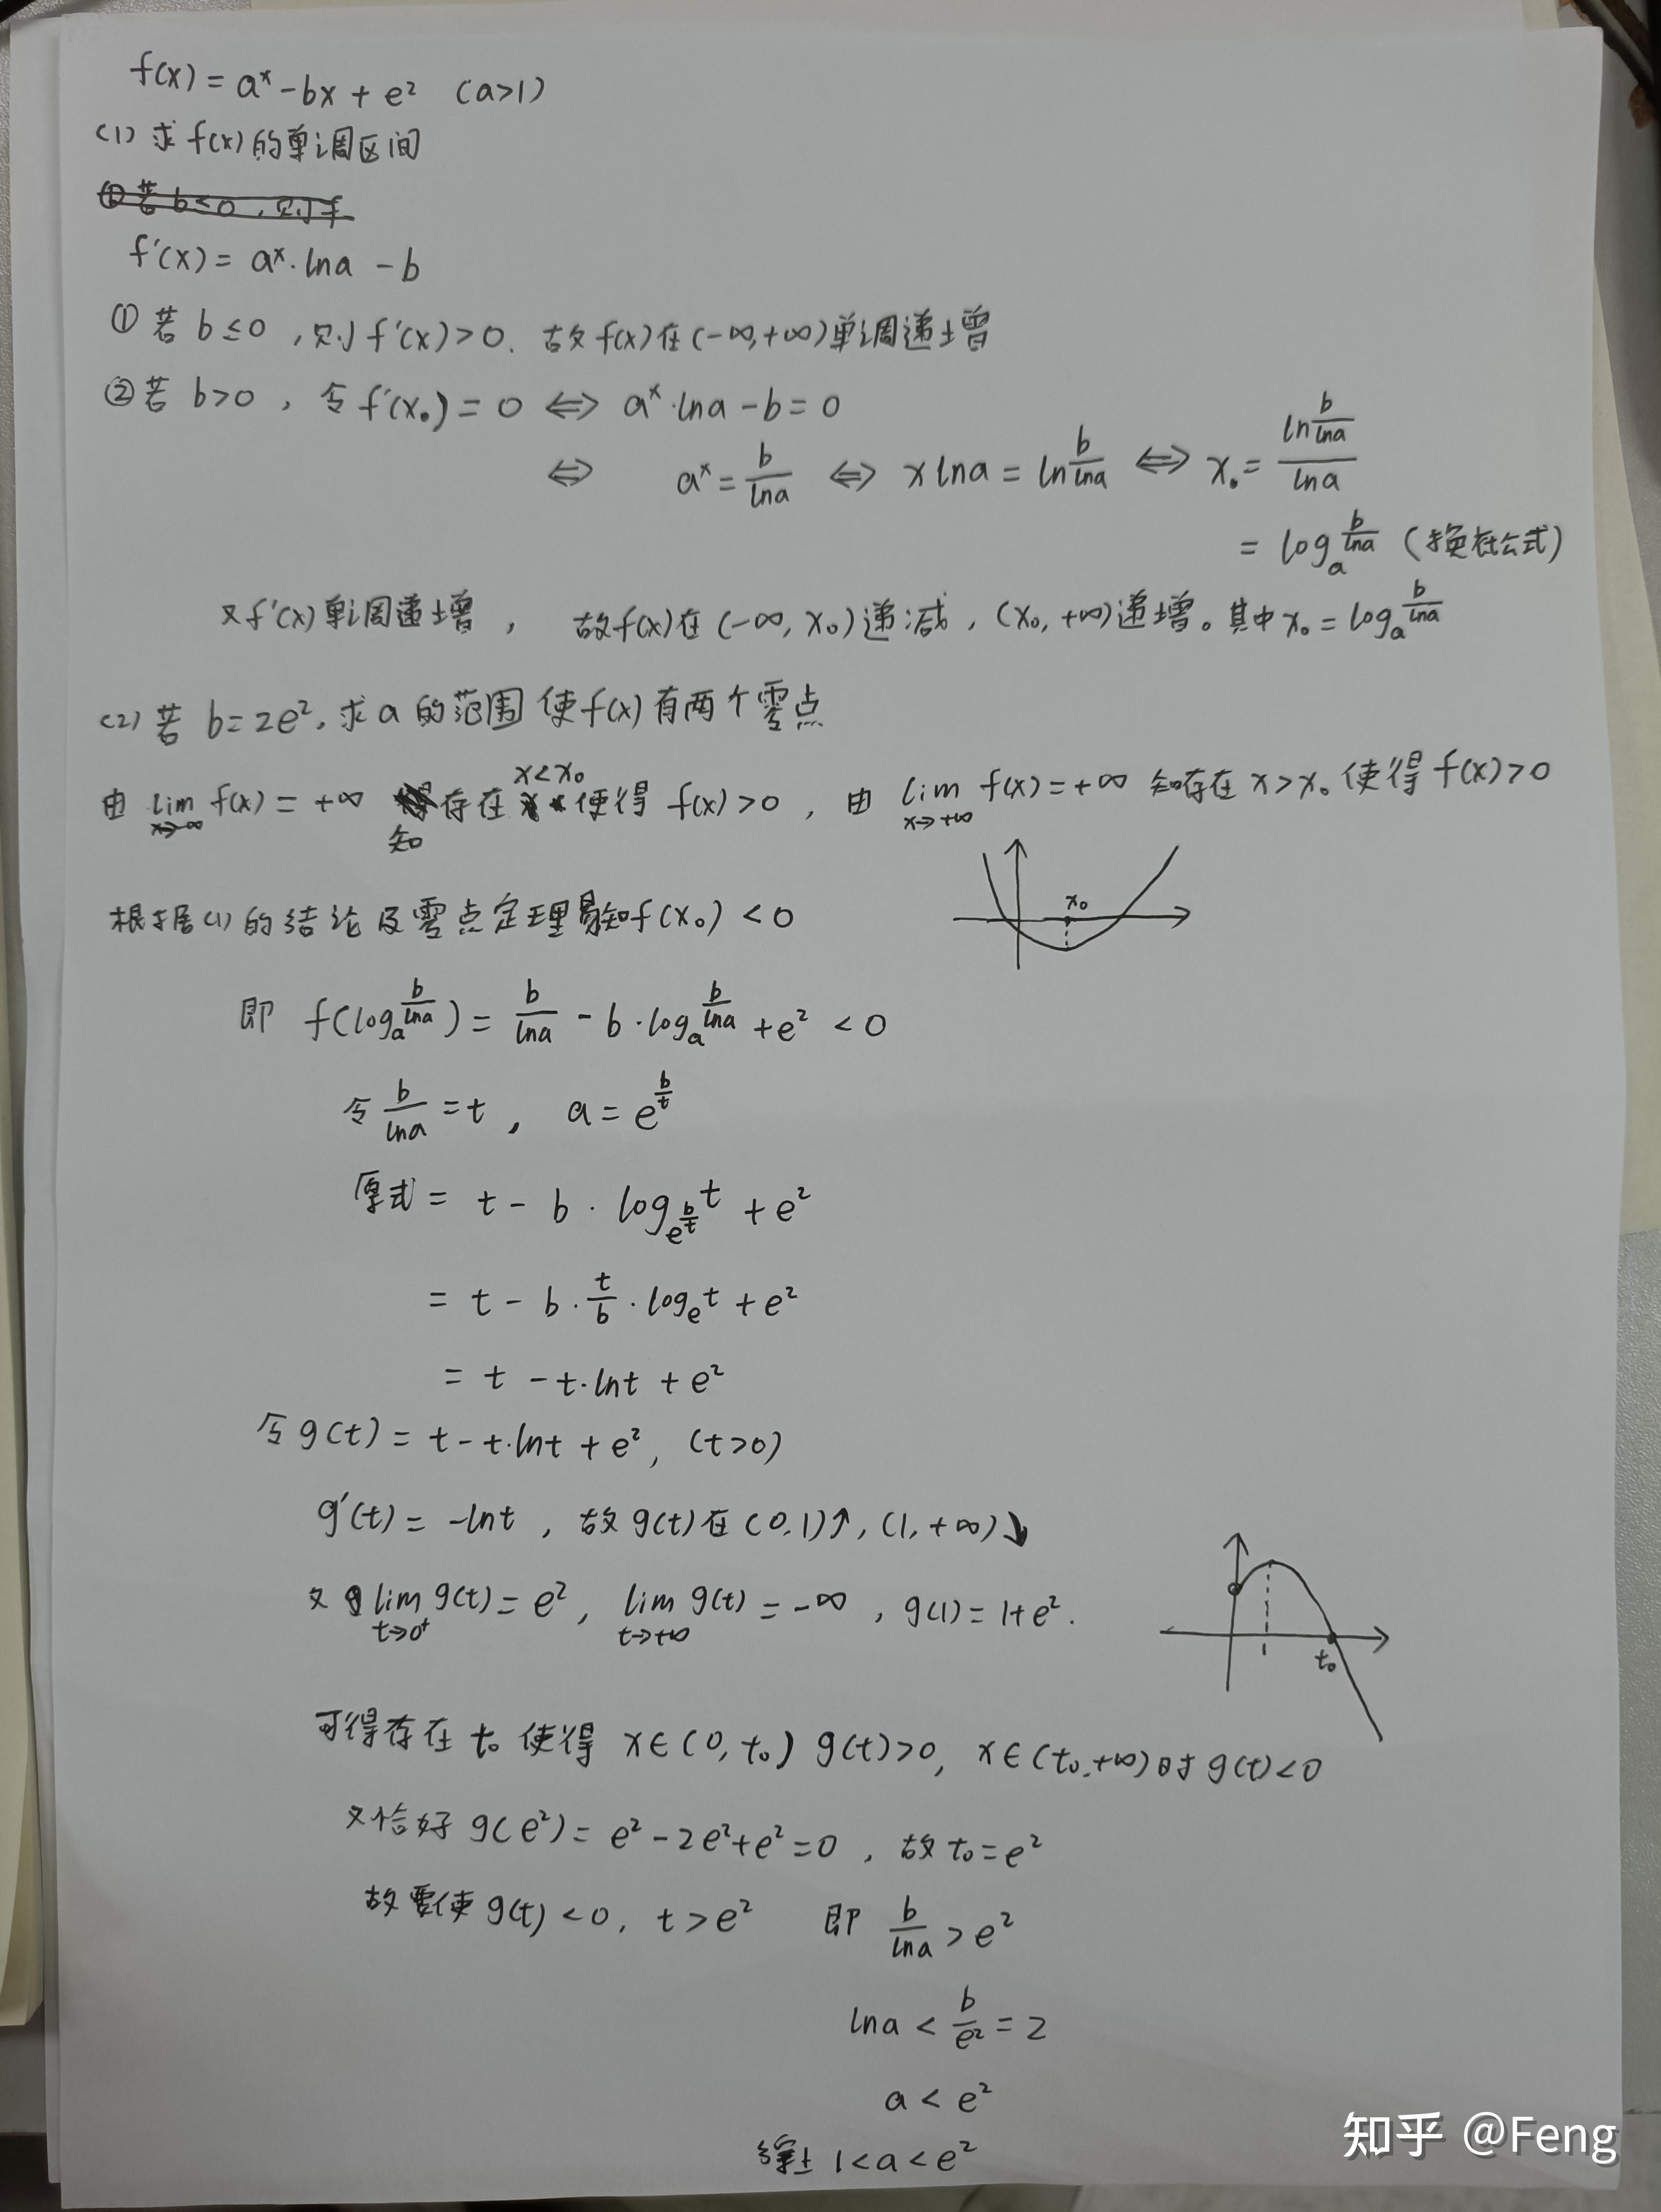 f(x) = aˣ - bx + e² (a>1)
(1) 求 f(x) 的单调区间
① 若 b≤0, 则 f
f'(x) = aˣ·lna - b
① 若 b≤0, 则 f'(x)>0. 故 f(x) 在 (-∞,+∞) 单调递增
② 若 b>0, 令 f'(x₀) = 0 ⟺ aˣ·lna - b = 0
⟺ aˣ = b/lna ⟺ xlna = ln b/lna ⟺ x₀ = (ln b/lna)/lna
= logₐ b/lna (换底公式)
又 f'(x) 单调递增, 故 f(x) 在 (-∞, x₀) 递减, (x₀, +∞) 递增。其中 x₀ = logₐ b/lna
(2) 若 b=2e², 求 a 的范围使 f(x) 有两个零点
由 lim x→-∞ f(x) = +∞ 知存在 x<x₀ 使得 f(x)>0, 由 lim x→+∞ f(x) = +∞ 知存在 x>x₀ 使得 f(x)>0
x₀
根据(1)的结论及零点定理易知 f(x₀) < 0
即 f(logₐ b/lna) = b/lna - b·logₐ b/lna + e² < 0
令 b/lna = t, a = e^(b/t)
原式 = t - b · log_(e^(b/t)) t + e²
= t - b · t/b · logₑt + e²
= t - t·lnt + e²
令 g(t) = t - t·lnt + e², (t>0)
g'(t) = -lnt, 故 g(t) 在 (0,1)↑, (1,+∞)↓
又 lim t→0⁺ g(t) = e², lim t→+∞ g(t) = -∞, g(1) = 1+e².
1 t₀
可得存在 t₀ 使得 x∈(0,t₀) g(t)>0, x∈(t₀,+∞)时 g(t)<0
又恰好 g(e²) = e² - 2e² + e² = 0, 故 t₀ = e²
故要使 g(t) < 0, t > e² 即 b/lna > e²
lna < b/e² = 2
a < e²
综上 1 < a < e²
知乎 @Feng